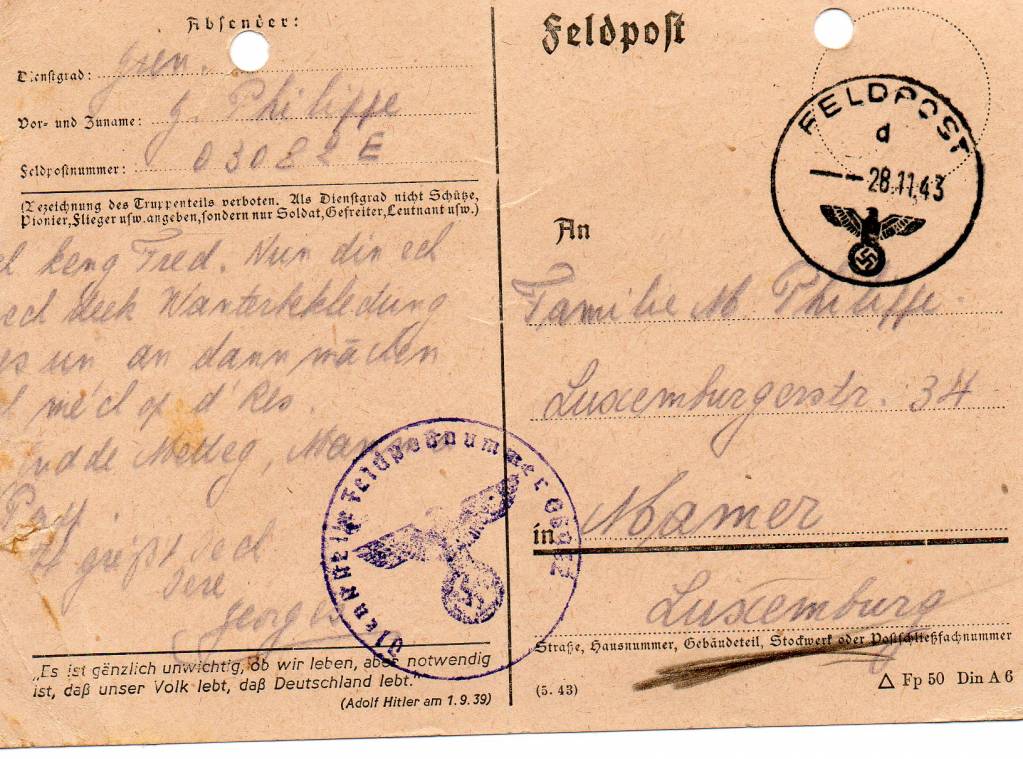 Absender:
Dienstgrad: Gren.
Vor- und Zuname: G. Philippe
Feldpostnummer: 03082 E
(Bezeichnung des Truppenteils verboten. Als Dienstgrad nicht Schütze,
Pionier, Flieger usw. angeben, sondern nur Soldat, Gefreiter, Leutnant usw.)
keng Fred. Nun din ech
Wanterkkledung
un an dann mächen
me'ch op d'
Metteg,
grëißt iech
iere
Georges
„Es ist gänzlich unwichtig, ob wir leben, aber notwendig
ist, daß unser Volk lebt, daß Deutschland lebt.“
(Adolf Hitler am 1.9.39)
Feldpost
FELDPOST
d
28.11.43
An
Familie M. Philippe.
Luxemburgerstr. 34
in Mamer
Luxemburg
Straße, Hausnummer, Gebäudeteil, Stockwerk oder Postschließfachnummer
(5. 43)
△ Fp 50 Din A 6
Dienststelle Feldpostnummer